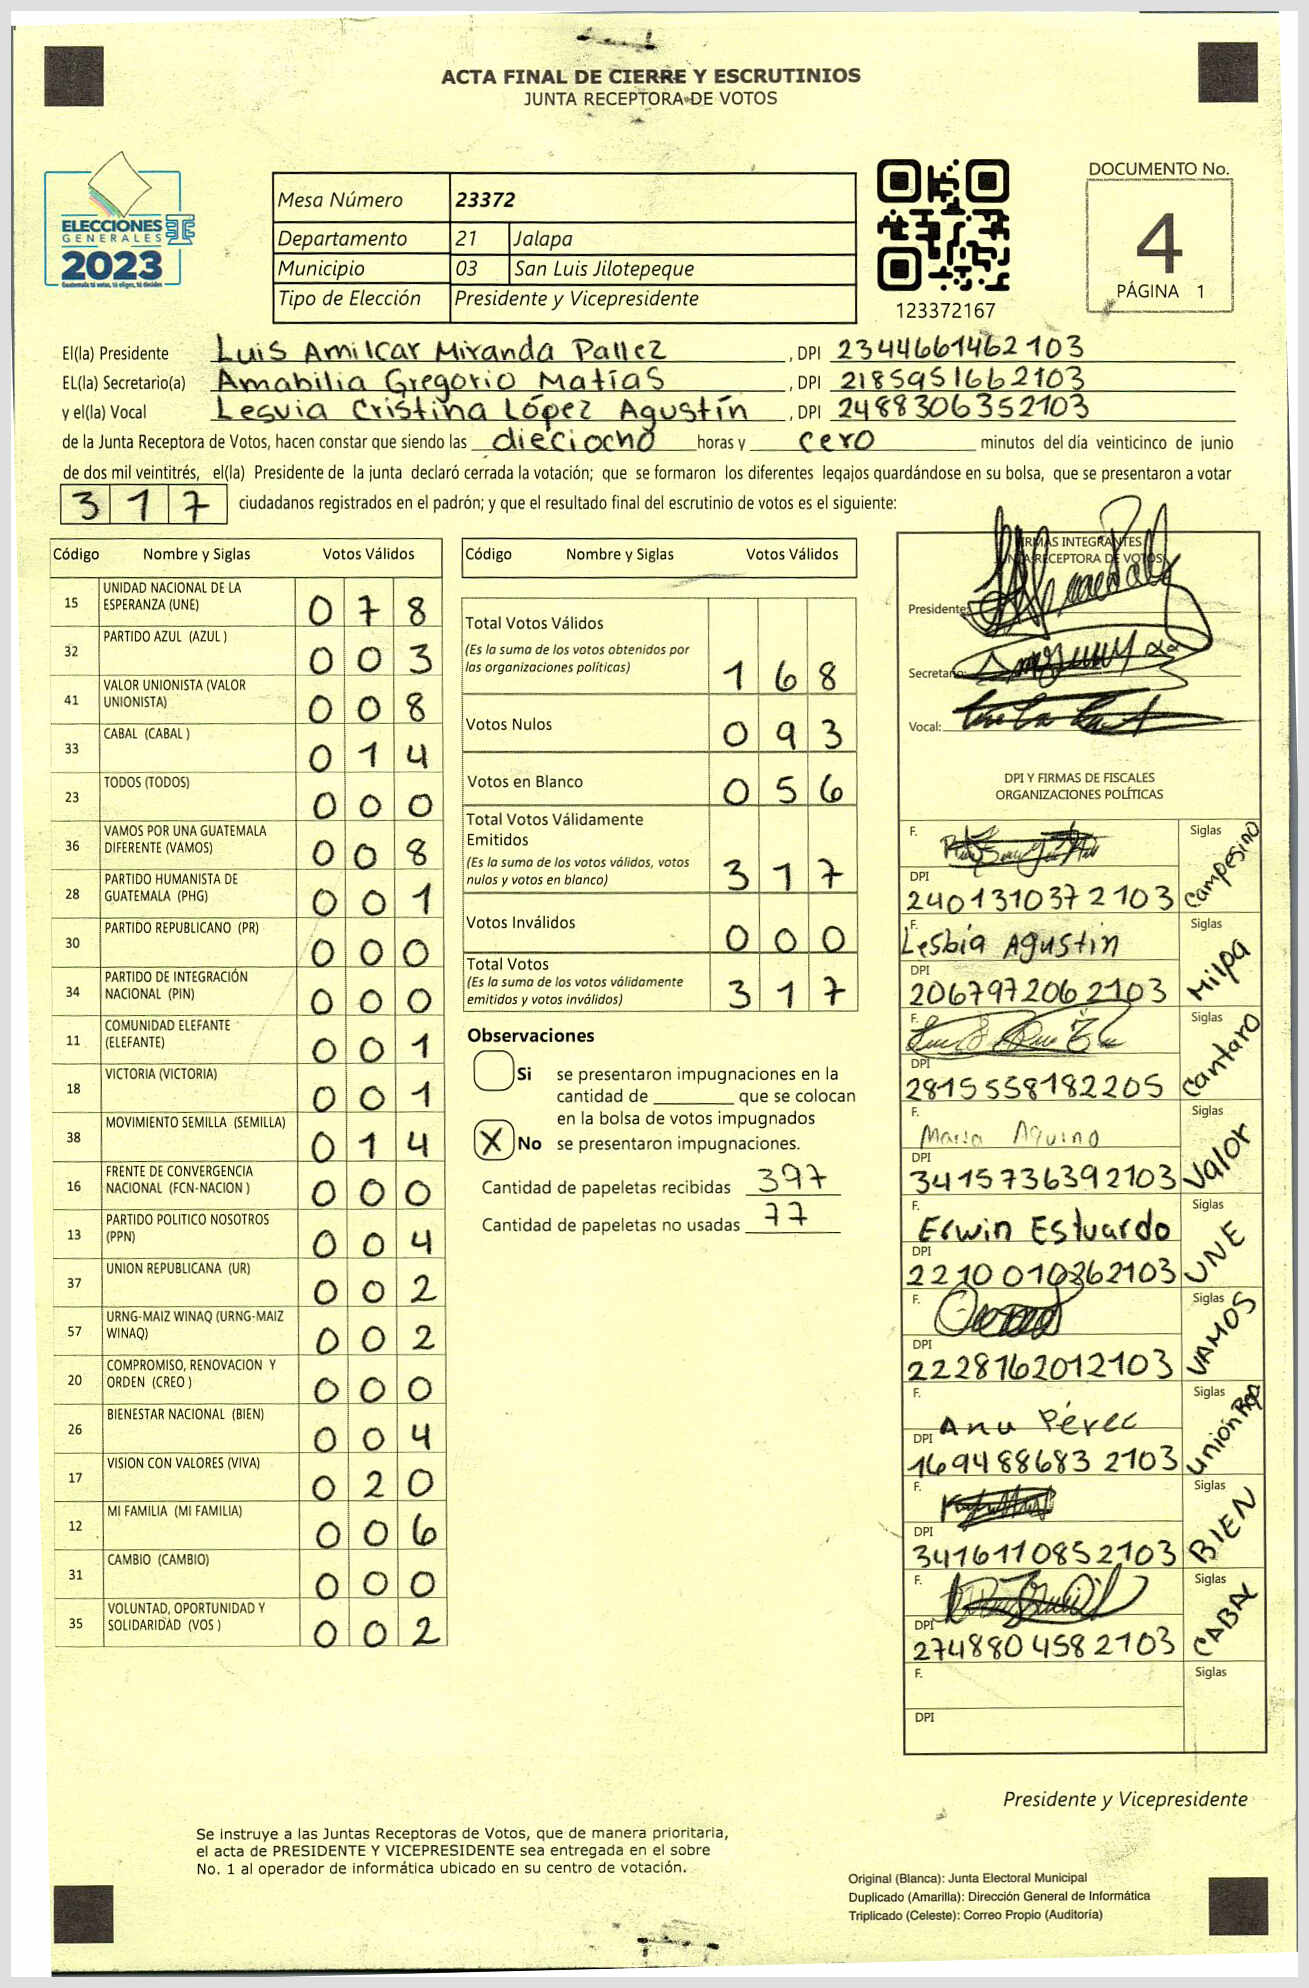 ACTA FINAL DE CIERRE Y ESCRUTINIOS
JUNTA RECEPTORA DE VOTOS
ELECCIONES
GENERALES
2023
Guatemala tú votas, tú eliges, tú decides
Mesa Número 23372
Departamento 21 Jalapa
Municipio 03 San Luis Jilotepeque
Tipo de Elección Presidente y Vicepresidente
123372167
DOCUMENTO No.
4
PÁGINA 1
El(la) Presidente Luis Amilcar Miranda Pallez , DPI 2344661462103
EL(la) Secretario(a) Amabilia Gregorio Matías , DPI 2185951662103
y el(la) Vocal Lesvia Cristina López Agustín , DPI 2488306352103
de la Junta Receptora de Votos, hacen constar que siendo las dieciocho horas y cero minutos del día veinticinco de junio
de dos mil veintitrés, el(la) Presidente de la junta declaró cerrada la votación; que se formaron los diferentes legajos guardándose en su bolsa, que se presentaron a votar
317 ciudadanos registrados en el padrón; y que el resultado final del escrutinio de votos es el siguiente:
Código Nombre y Siglas Votos Válidos
15 UNIDAD NACIONAL DE LA ESPERANZA (UNE) 078
32 PARTIDO AZUL (AZUL ) 003
41 VALOR UNIONISTA (VALOR UNIONISTA) 008
33 CABAL (CABAL ) 014
23 TODOS (TODOS) 000
36 VAMOS POR UNA GUATEMALA DIFERENTE (VAMOS) 008
28 PARTIDO HUMANISTA DE GUATEMALA (PHG) 001
30 PARTIDO REPUBLICANO (PR) 000
34 PARTIDO DE INTEGRACIÓN NACIONAL (PIN) 000
11 COMUNIDAD ELEFANTE (ELEFANTE) 001
18 VICTORIA (VICTORIA) 001
38 MOVIMIENTO SEMILLA (SEMILLA) 014
16 FRENTE DE CONVERGENCIA NACIONAL (FCN-NACION ) 000
13 PARTIDO POLITICO NOSOTROS (PPN) 004
37 UNION REPUBLICANA (UR) 002
57 URNG-MAIZ WINAQ (URNG-MAIZ WINAQ) 002
20 COMPROMISO, RENOVACION Y ORDEN (CREO ) 000
26 BIENESTAR NACIONAL (BIEN) 004
17 VISION CON VALORES (VIVA) 020
12 MI FAMILIA (MI FAMILIA) 006
31 CAMBIO (CAMBIO) 000
35 VOLUNTAD, OPORTUNIDAD Y SOLIDARIDAD (VOS ) 002
Código Nombre y Siglas Votos Válidos
Total Votos Válidos
(Es la suma de los votos obtenidos por
las organizaciones políticas) 168
Votos Nulos 093
Votos en Blanco 056
Total Votos Válidamente
Emitidos
(Es la suma de los votos válidos, votos
nulos y votos en blanco) 317
Votos Inválidos 000
Total Votos
(Es la suma de los votos válidamente
emitidos y votos inválidos) 317
Observaciones
Si se presentaron impugnaciones en la
cantidad de ________ que se colocan
en la bolsa de votos impugnados
X No se presentaron impugnaciones.
Cantidad de papeletas recibidas 397
Cantidad de papeletas no usadas 77
FIRMAS INTEGRANTES
JUNTA RECEPTORA DE VOTOS
Presidente:
Secretario:
Vocal:
DPI Y FIRMAS DE FISCALES
ORGANIZACIONES POLÍTICAS
F. Siglas Campesino
DPI
2401310372103
F. Lesbia Agustin Siglas Milpa
DPI
2067972062103
F. Siglas Cantaro
DPI
2815558182205
F. Maria Aquino Siglas Valor
DPI
3415736392103
F. Erwin Estuardo Siglas UNE
DPI
2210010362103
F. Siglas VAMOS
DPI
2228162012103
F. Ana Pérez Siglas Unión Rep
DPI
1694886832103
F. Siglas BIEN
DPI
3416110852103
F. Siglas CABAL
DPI
2748804582103
F. Siglas
DPI
Presidente y Vicepresidente
Se instruye a las Juntas Receptoras de Votos, que de manera prioritaria,
el acta de PRESIDENTE Y VICEPRESIDENTE sea entregada en el sobre
No. 1 al operador de informática ubicado en su centro de votación.
Original (Blanca): Junta Electoral Municipal
Duplicado (Amarilla): Dirección General de Informática
Triplicado (Celeste): Correo Propio (Auditoría)